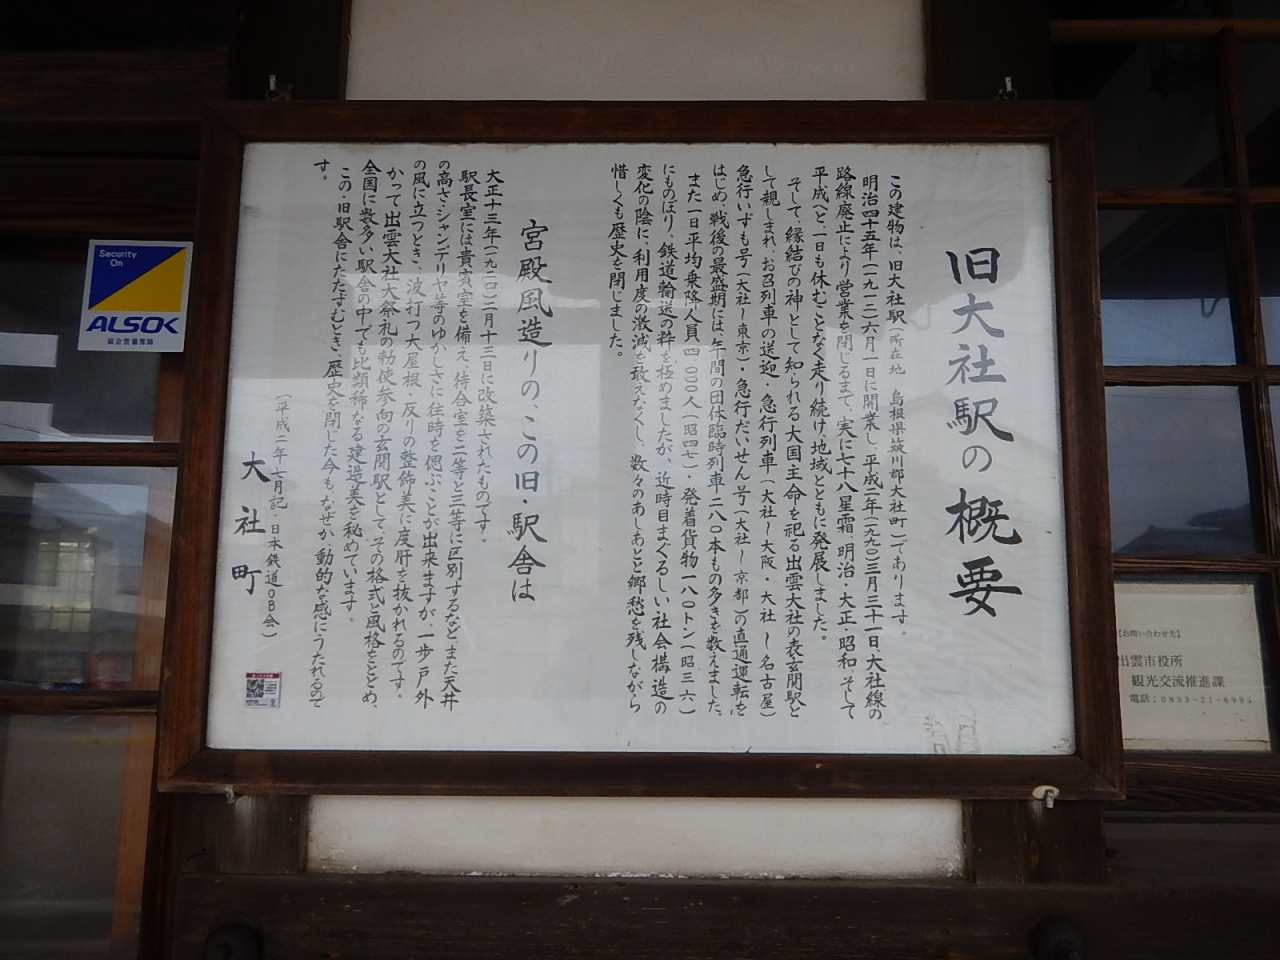 旧大社駅の概要
この建物は、旧大社駅(所在地 島根県簸川郡大社町)であります。
明治四十五年(一九一二)六月一日に開業し、平成二年(一九九〇)三月三十一日、大社線の
路線廃止により営業を閉じるまで、実に七十八星霜、明治・大正・昭和、そして
平成へと一日も休むことなく走り続け地域とともに発展しました。
そして、縁結びの神として知られる大国主命を祀る出雲大社の表玄関駅と
して親しまれ、お召列車の送迎・急行列車(大社〜大阪・大社〜名古屋)
急行いずも号(大社〜東京)・急行だいせん号(大社〜京都)の直通運転を
はじめ、戦後の最盛期には、年間の団体臨時列車二八〇本もの多きを数えました。
また一日平均乗降人員四、〇〇〇人(昭四七)・発着貨物一八〇トン(昭三六)
にものぼり、鉄道輸送の粋を極めましたが、近時目まぐるしい社会構造の
変化の陰に、利用度の激減を敢えなくし、数々のあしあとと郷愁を残しながら
惜しくも歴史を閉じました。
宮殿風造りの、この旧・駅舎は
大正十三年(一九二四)二月十三日に改築されたものです。
駅長室には貴賓室を備え、待合室を二等と三等に区別するなど、また天井
の高さ・シャンデリヤ等のゆかしさに往時を偲ぶことが出来ますが、一歩戸外
の風に立つとき、波打つ大屋根・反りの整飾美に度肝を抜かれるのです。
かって出雲大社大祭礼の勅使参向の玄関駅として、その格式と風格をとどめ、
全国に数多い駅舎の中でも比類稀なる建造美を秘めています。
この・旧駅舎にたたずむとき、歴史を閉じた今も、なぜか動的な感にうたれるので
す。
(平成二年七月記・日本鉄道OB会)
大社町
Security
On
ALSOK
綜合警備保障
【お問い合わせ先】
出雲市役所
観光交流推進課
電話：0853-21-6995